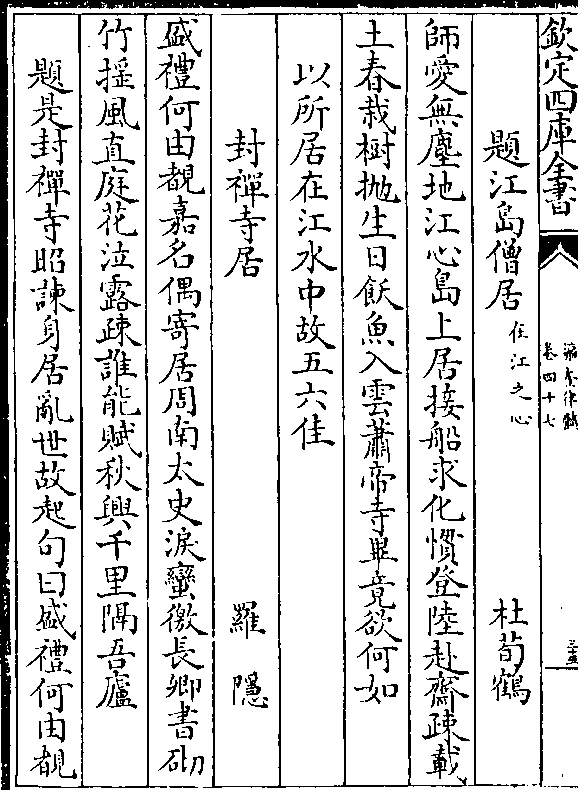 欽定四庫全書
瀛奎律髓
卷四十七
題江島僧居在江之心 杜荀鶴
師愛無塵地江心島上居接船求化慣登陸赴齋疎載
土春栽樹抛生日飯魚入雲蕭帝寺畢竟欲何如
以所居在江水中故五六佳
封禪寺居 羅隱
盛禮何由覩嘉名偶寄居周南太史淚蠻徼長卿書砌
竹搖風直庭花泣露疎誰能賦秋興千里隔吾廬
題是封禪寺昭諫身居亂世故起句曰盛禮何由覩